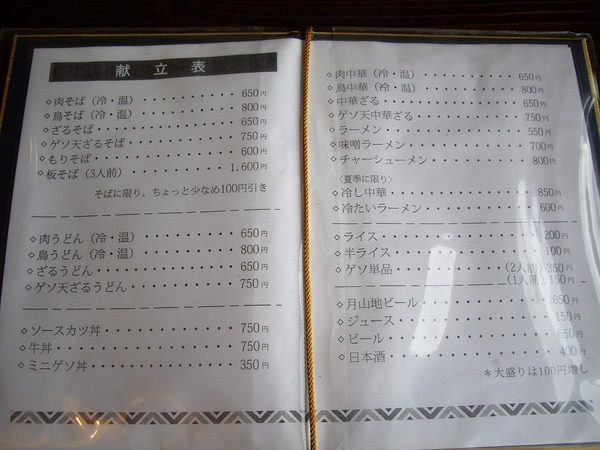 献立表
◇肉そば（冷・温）・・・・・・・・・・650円
◇鳥そば（冷・温）・・・・・・・・・・800円
◇ざるそば・・・・・・・・・・・・・・650円
◇ゲソ天ざるそば・・・・・・・・・・・750円
◇もりそば・・・・・・・・・・・・・・600円
◇板そば（3人前）・・・・・・・・・・1.600円
そばに限り、ちょっと少なめ100円引き
◇肉うどん（冷・温）・・・・・・・・・650円
◇鳥うどん（冷・温）・・・・・・・・・800円
◇ざるうどん・・・・・・・・・・・・・650円
◇ゲソ天ざるうどん・・・・・・・・・・750円
◇ソースカツ丼・・・・・・・・・・・・750円
◇牛丼・・・・・・・・・・・・・・・・750円
◇ミニゲソ丼・・・・・・・・・・・・・350円
◇肉中華（冷・温）・・・・・・・・・・650円
◇鳥中華（冷・温）・・・・・・・・・・800円
◇中華ざる・・・・・・・・・・・・・・650円
◇ゲソ天中華ざる・・・・・・・・・・・750円
◇ラーメン・・・・・・・・・・・・・・550円
◇味噌ラーメン・・・・・・・・・・・・700円
◇チャーシューメン・・・・・・・・・・800円
〈夏季に限り〉
◇冷し中華・・・・・・・・・・・・・・850円
◇冷たいラーメン・・・・・・・・・・・600円
◇ライス・・・・・・・・・・・・・・・200円
◇半ライス・・・・・・・・・・・・・・100円
◇ゲソ単品・・・・・・・・・(2人前)350円
(1人前)150円
◇月山地ビール・・・・・・・・・・・・650円
◇ジュース・・・・・・・・・・・・・・150円
◇ビール・・・・・・・・・・・・・・・650円
◇日本酒・・・・・・・・・・・・・・・400円
＊大盛りは100円増し